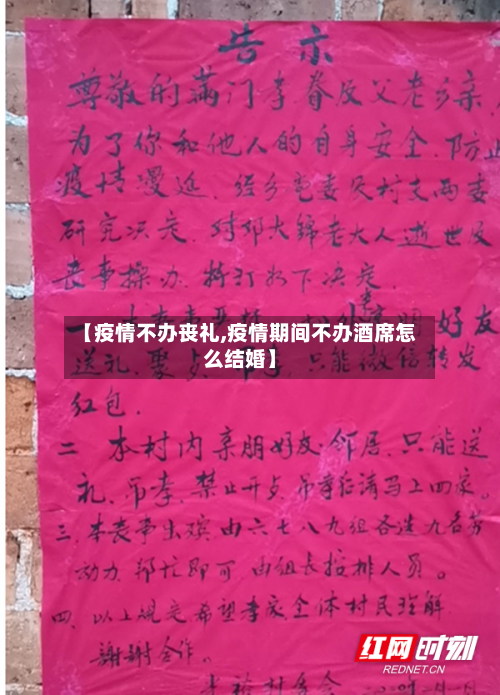 告示
尊敬的满门孝眷及父老乡亲
为了你和他人的自身安全,防止
疫情漫延,经乡党委及村支两委
研究决定,对邓大锦老大人逝世及
丧事操办,特订如下决定
【疫情不办丧礼,疫情期间不办酒席怎
么结婚】
一 好友
送礼 只能微信转发
红包.
二 本村内亲朋好友.邻居.只能送
礼.吊孝.禁止开夕.吊孝后请马上回家。
三.本丧事出殡由六七八九组各选九名劳
动力.帮忙即可 由组长按排人员。
四.以上规定希望孝家全体村民理解
谢谢合作。
红网时刻
REDNET.CN